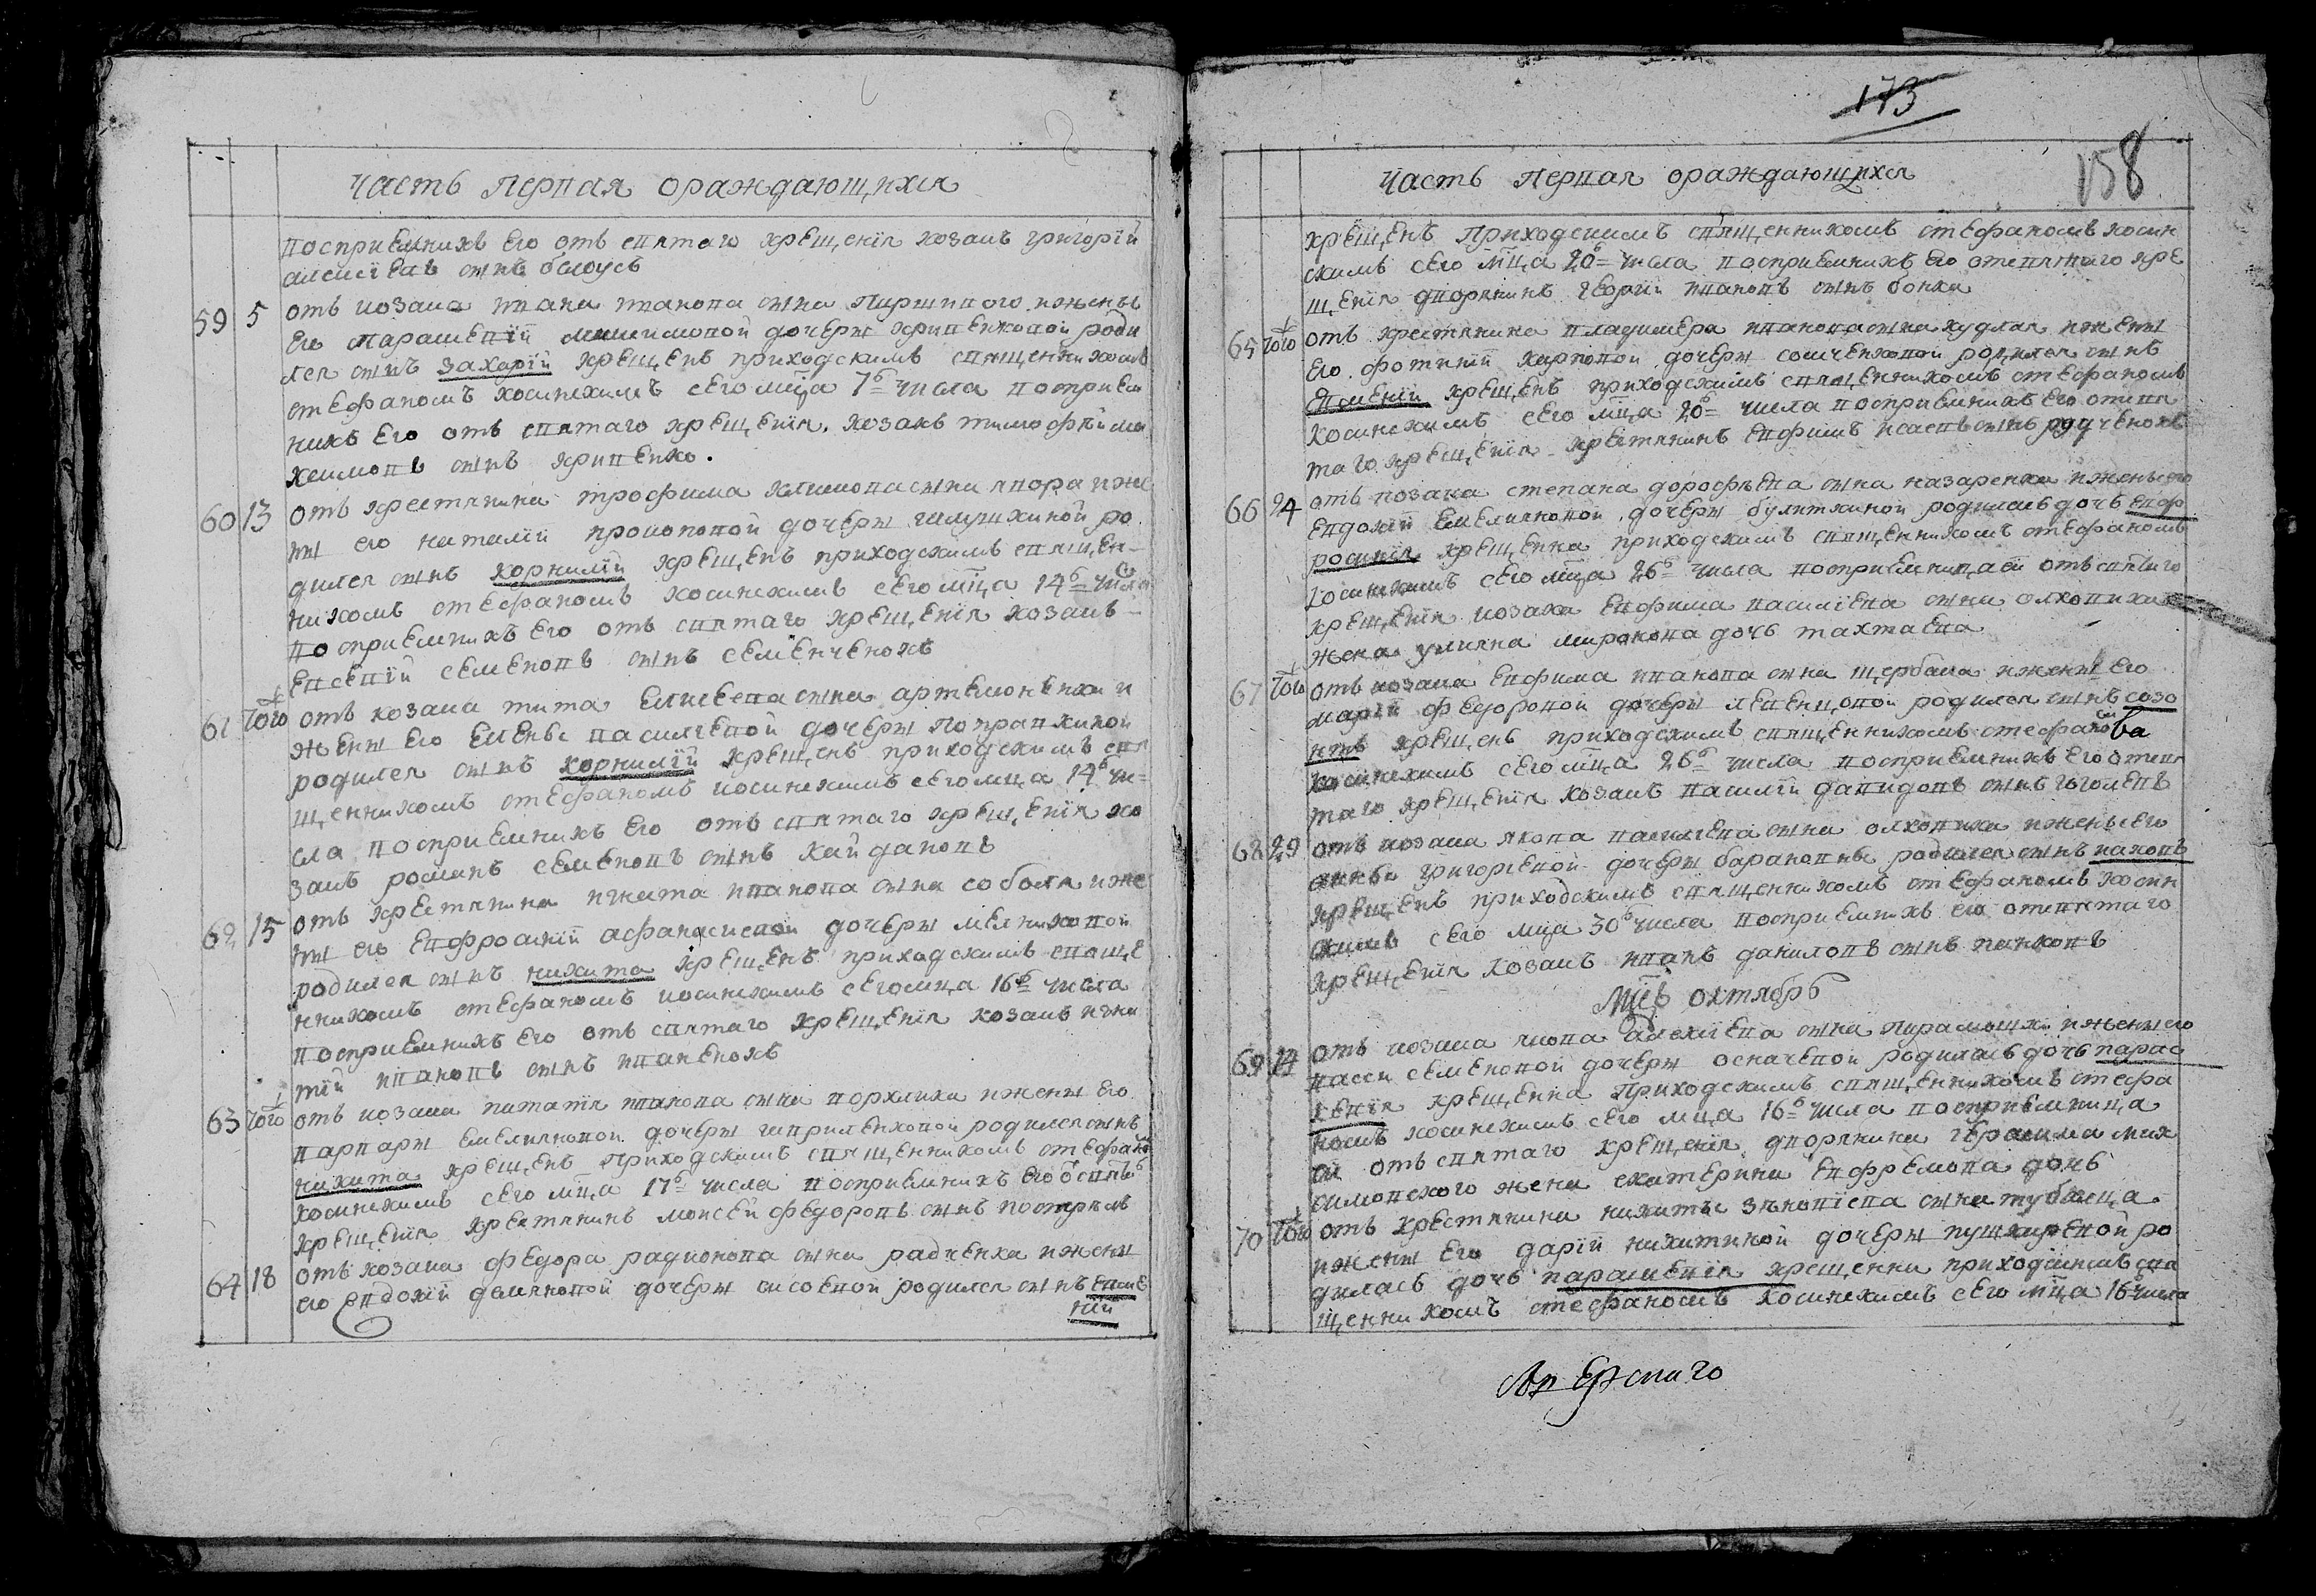 Часть Первая ораждающихся
восприемникъ Его отъ святаго крещенія козакъ григорій
алексіевъ сынъ білоусъ
59 5 отъ козака ивана иванова сына Паршивого и жены
Его параскевій максимовой дочеры хрипенковой роди
лся сынъ захарій крещенъ приходскимъ священникомъ
стефаномъ косинскимъ сего мца 7 числа восприем
никъ Его отъ святаго крещенія козакъ тимофѣй ма
ксимовъ сынъ хрипенко.
60 13 отъ крестянина трофима климова сына явора и же
ны его наталій прокоповой дочеры галушкиной ро
дился сынъ корнилій крещенъ приходскимъ священ-
никомъ стефаномъ косинскимъ сего мца 14 числа
восприемникъ Его отъ святаго крещенія козакъ
Евсевій семеновъ сынъ семенченокъ
61 того отъ козака тита Елисеева сына артемоненка и
жены Его Елены василіевой дочеры поправкиной
родился сынъ корнилій крещенъ приходскимъ свя
щенникомъ стефаномъ косинскимъ сего мца 14 чи-
сла восприемникъ Его отъ святаго крещенія ко
закъ романъ семеновъ сынъ кайдановъ
62 15 отъ крестянина игната иванова сына соболя и же
ны его Евфросиній афанасиевой дочеры мелниковой
родился сынъ никита крещенъ приходскимъ свяще
нникомъ стефаномъ косинскимъ сего мца 16 числа
восприемникъ Его отъ святаго крещенія козакъ игна
тій ивановъ сынъ иваненокъ
63 того отъ козака виталія иванова сына порхлика и жены Его
варвары Емелиановой дочеры гавриленковой родился сынъ
никита крещенъ Приходскимъ священникомъ стефано
косинскимъ сего мца 17 числа восприемникъ Его
крещенія крестянинъ моисей федоровъ сынъ пострѣлъ
64 18 отъ козака федора радионова сына радченка и жены
его Евдокій демяновой дочеры сисоевой родился сынъ Евме
ній
173
158
Часть Первая ораждающихся
крещенъ Приходскимъ священникомъ стефаномъ косин
скимъ сего мца 20 числа восприемникъ Его отсвятаго кре
щенія дворянинъ георгій ивановъ сынъ бонка
65 того отъ крестянина владимера иванова сына худлая и жены
Его фотиній карповой дочеры сомченковой родился сынъ
Евмений крещенъ приходскимъ священникомъ стефаномъ
косинскимъ сего мца 20 числа восприемникъ Его отсвя
таго крещенія крестянинъ Евфимъ исаевъ сынъ рудченокъ
66 24 отъ козака степана дорофѣева сына назаренка и жены его
Евдокій Емелиановой дочеры булиткиной родилась дочь Евф
росинія крещенна приходскимъ священникомъ стефаномъ
косинскимъ сего мца 26 числа восприемница Ей отъ святаго
крещенія козака Евфима василіева сына олховика
жена улияна миронова дочь тахтаева
67 того отъ козака Евфима иванова сына щербака и жены Его
марій федоровой дочеры левенцовой родился сынъ созо
нтъ крещенъ приходскимъ священникомъ стефано
косинскимъ сего мца 26 числа восприемникъ Его отсвя
таго крещенія козакъ василій давидовъ сынъ гоголевъ
68 29 отъ козака якова василиева сына олховика и жены Его
анны григоріевой дочеры барановны родился сынъ иаковъ
крещенъ приходскимъ священникомъ стефаномъ косин
скимъ сего мца 30 числа восприемникъ его отсвятаго
крещенія козакъ иванъ даниловъ сынъ панковъ
Мцъ октябрь
69 14 отъ козака якова алексіева сына Парамошки и жены его
васси семеновой дочеры осначевой родилась дочь парас
кевія крещенна Приходскимъ священникомъ стефа
номъ косинскимъ сего мца 16 числа восприемница
Ей отъ святаго крещенія дворянина герасима мак
симовского жена екатерина Евфремова дочь
70 того отъ крестянина никиты зѣновіева сына тубольца
и жены Его дарій никитиной дочеры пушкаревой ро
дилась дочь параскевія крещенна приходскимъ свя
щенникомъ стефаномъ косинскимъ сего мца 16 числа